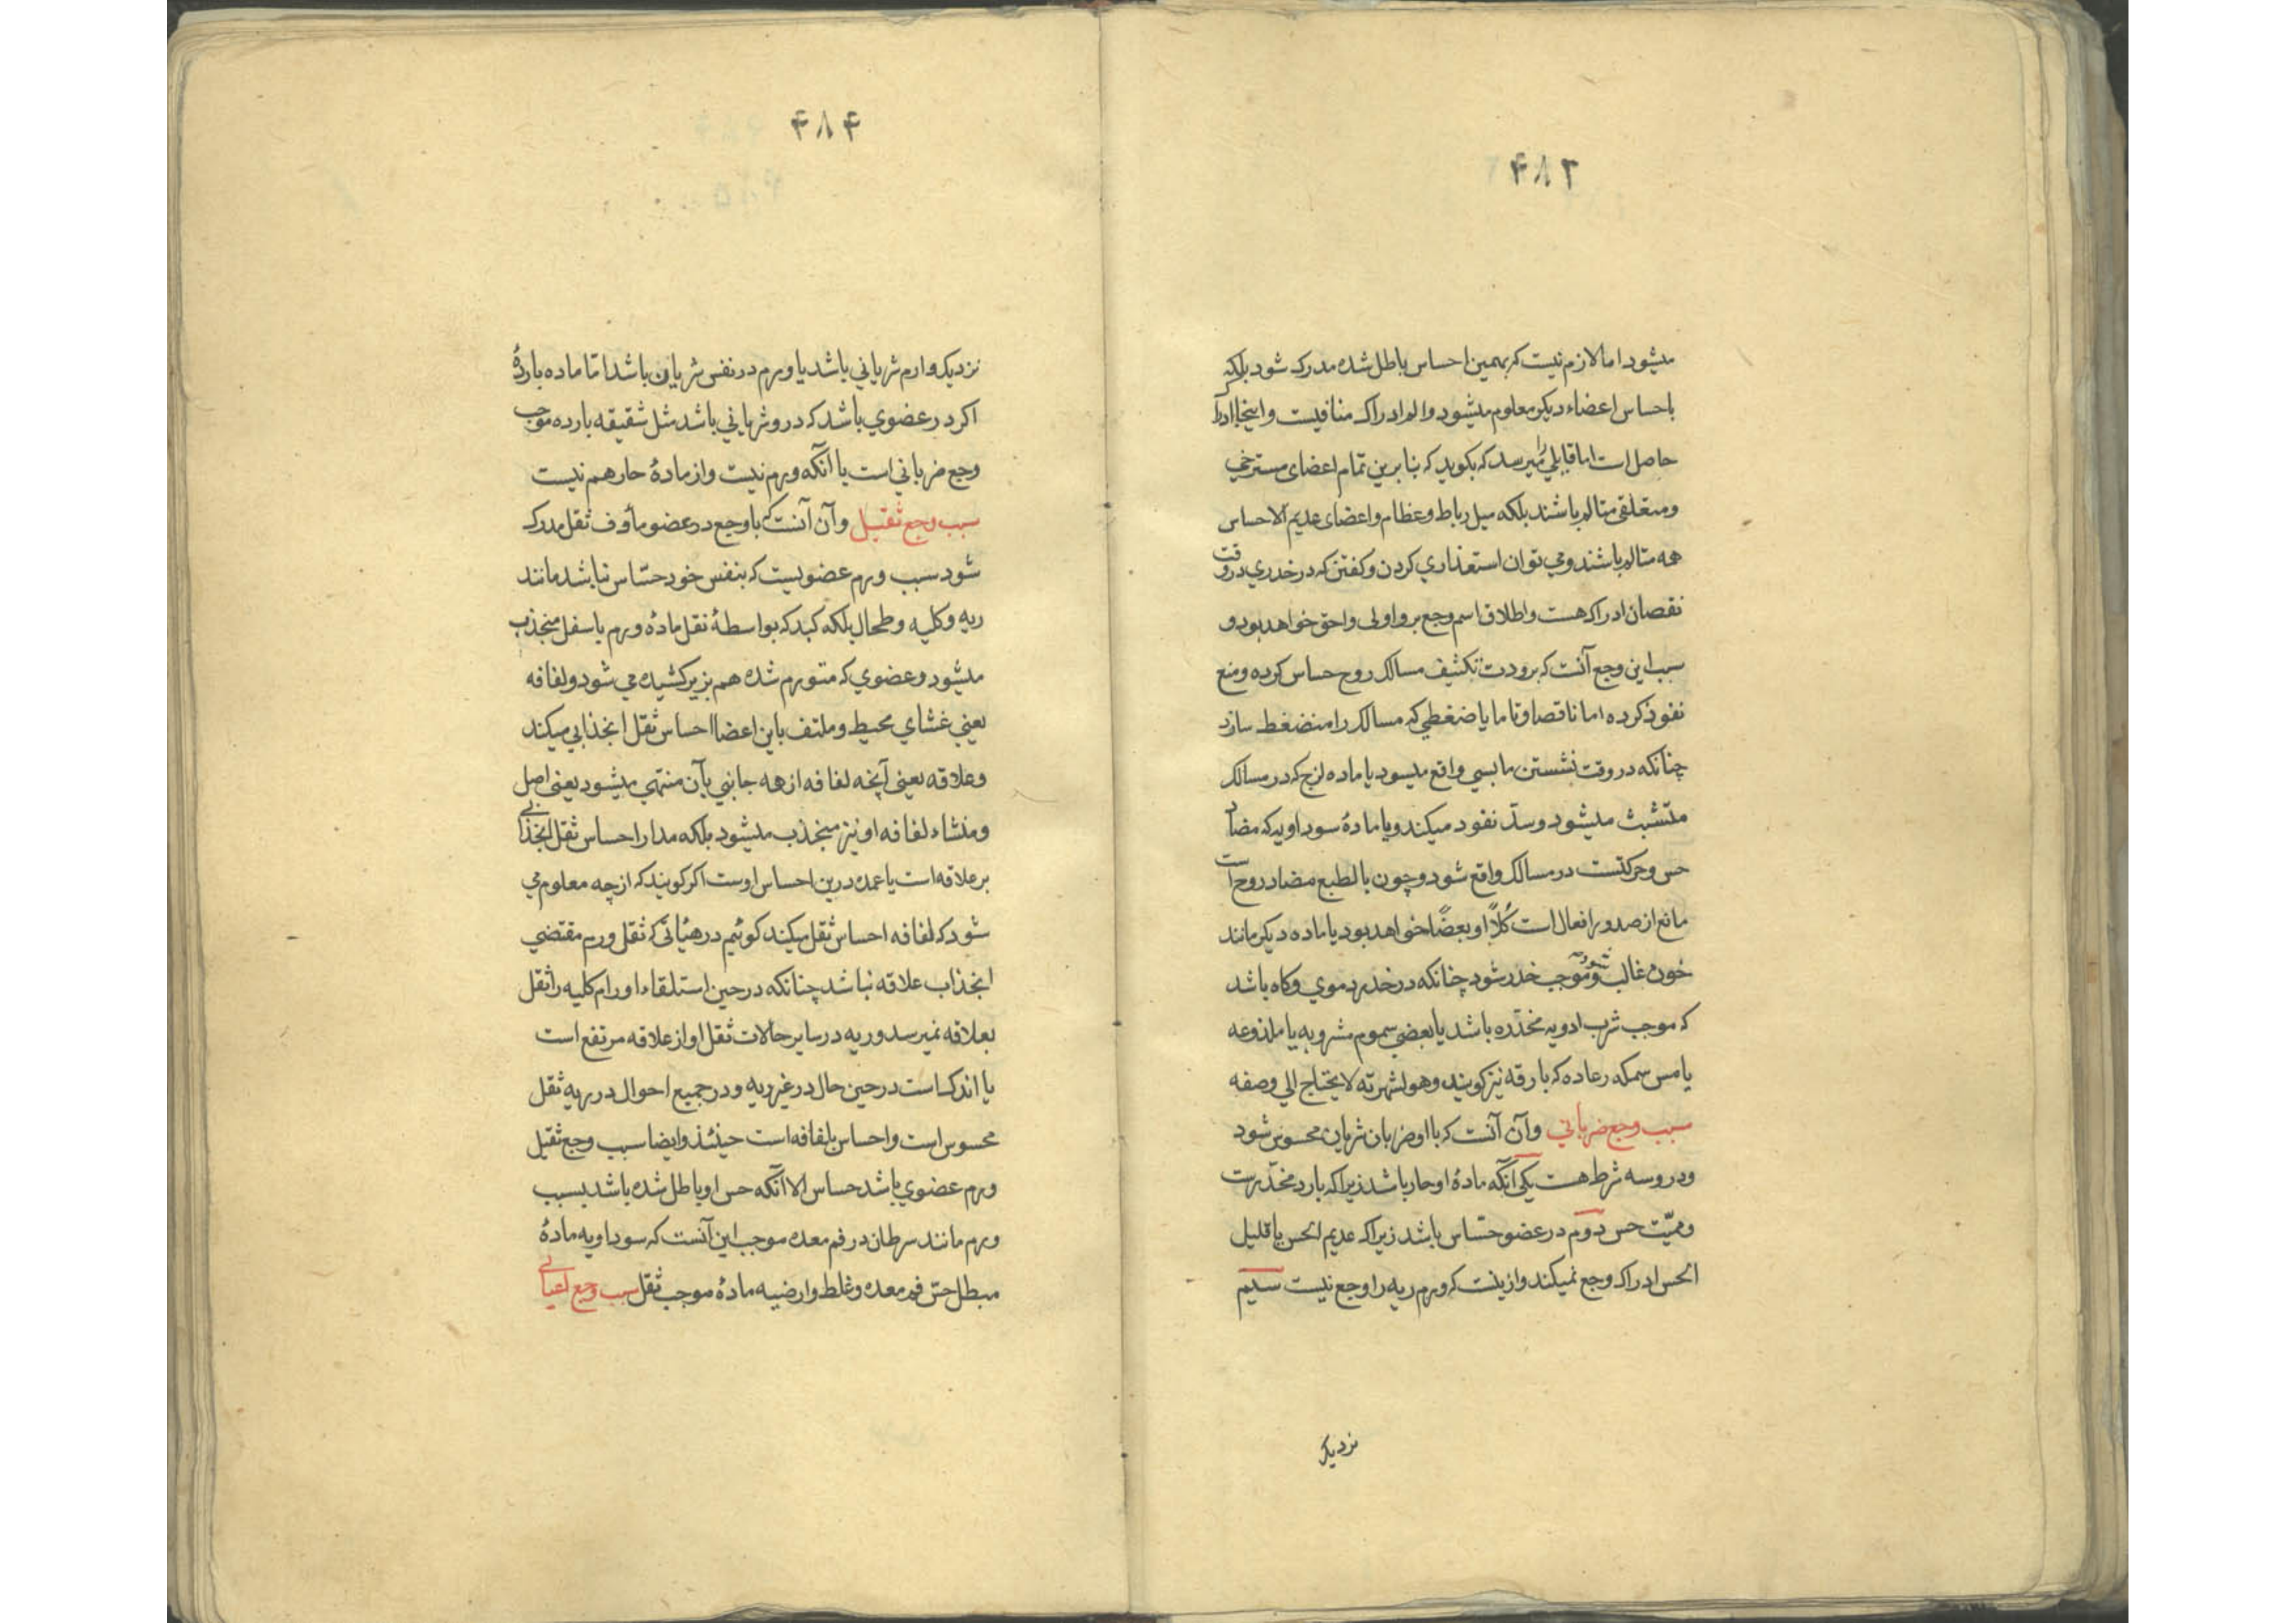 ۴۸۳
میشود اما لازم نیست که بهمین احساس باطل شده مدرک شود بلکه
باحساس اعضاء دیکر معلوم میشود و الم ادراک منافیست و اینجا ادراک
حاصل است اما قایلی را میرسد که بکوید که بنابرین تمام اعضای مسترخی
و متعلقی متالم باشند بلکه میل رباط و عظام و اعضای عدیم الاحساس
همه متالم باشند و می توان استعذاری کردن و کفتن که در خدری در وقت
نقصان ادراک هست و اطلاق اسم وجع برو اولی و احق خواهد بود و
سبب این وجع آنست که برودت تکثیف مسالک روح حساس کرده و منع
نفوذ کرده اما ناقصا و تاما یا ضغطی که مسالک را منضغط سازد
چنانکه در وقت نشستن ما بسی واقع میسود یا ماده لزج که در مسالک
متشبث میشود و سدّ نفود میکند و یا مادهٔ سوداویه که مضاد
حس و حرکتست در مسالک واقع شود و چون بالطبع مضاد روح است
مانع از صدور افعال است کُلاًّ او بعضًا خواهد بود یا ماده دیکر مانند
خون غالب شود و موجب خدر شود چنانکه در خدر دموی و کاه باشد
که موجب شرب ادویه مخدّره باشد یا بعضی سموم مشروبه یا ملذوعه
یا مس سمکه رعاده که بارقه نیز کویند وهو لشهرته لا یحتاج الی وصفه
سبب وجع ضربانی وآن آنست که با او ضربان شریان محسوس شود
و درو سه شرط هست یکی آنکه مادهٔ او حار باشد زیرا که بارد مخدّرست
و ممیّت حس دوم در عضو حسّاس باشد زیرا که عدیم الحس یا قلیل
الحس ادراک وجع نمیکند و ازینست که ورم ریه را وجع نیست سیم
نزدیک
۴۸۴
نزدیک وارم شریانی باشد یا ورم در نفس شریان باشد امّا ماده باردهٔ
اکر در عضوی باشد که درو شریانی باشد مثل شقیقه بارده موجب
وجع ضربانی است با آنکه ورم نیست و از مادهٔ حار هم نیست
سبب وجع ثقیل وآن آنست که با وجع در عضو مأوف ثقل مدرک
شود سبب ورم عضویست که بنفس خود حسّاس نباشد مانند
ریه و کلیه و طحال بلکه کبد که بواسطهٔ ثقل مادهٔ ورم باسفل منجذب
میشود و عضوی که متورم شده هم بزیر کشیده می شود و لفافه
یعنی غشای محیط و ملتف باین اعضا احساس ثقل انجذابی میکند
و علاقه یعنی آنچه لفافه از همه جانبی بآن منتهی میشود یعنی اصل
و منشاء لفافه او نیز منجذب میشود بلکه مدار احساس ثقل انجذابی
بر علاقه است یا عمده درین احساس اوست اکر کویند که از چه معلوم می
شود که لفافه احساس ثقل میکند کوئیم در هیأتی که ثقل ورم مقتضی
انجذاب علاقه نباشد چنانکه در حین استلقاء اورام کلیه را ثقل
بعلاقه نمیرسد و ریه در سایر حالات ثقل او از علاقه مرتفع است
یا اندک است در حین حال در غیر ریه و در جمیع احوال در ریه ثقل
محسوس است و احساس بلفافه است حینئذ و ایضا سبب وجع ثقیل
ورم عضوی باشد حساس الا آنکه حس او باطل شده باشد بسبب
ورم مانند سرطان در فم معده موجب این آنست که سوداویه مادهٔ
مبطل حسّ فم معده و غلظ و ارضیه مادهٔ موجب ثقل سبب وجع اعیائی